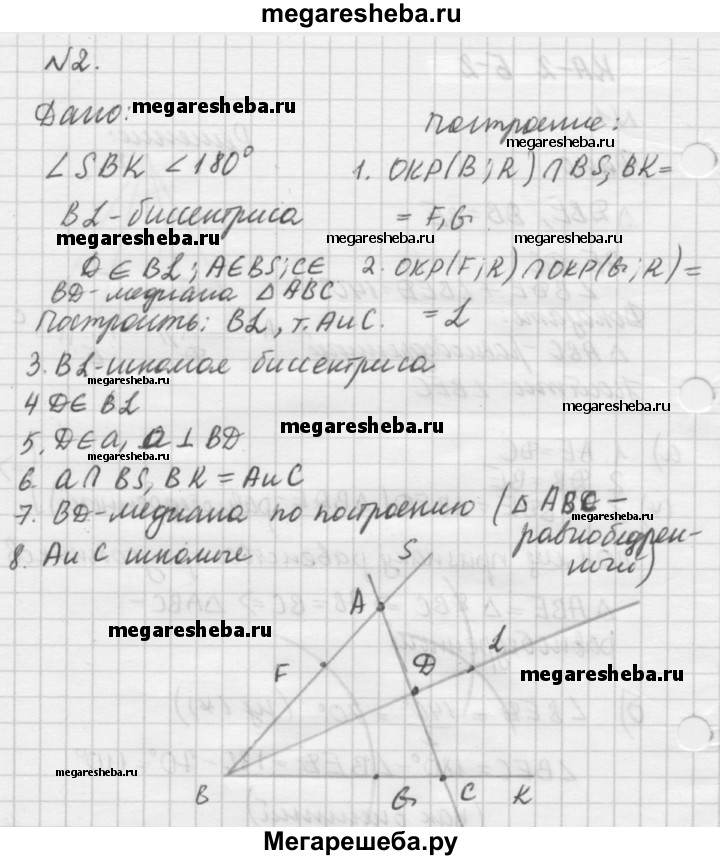 megaresheba.ru
N2.
Дано: megaresheba.ru
Построение:
megaresheba.ru
∠SBK < 180°
1. ОКР(B; R) ∩ BS, BK =
BL - биссектриса
= F, G
megaresheba.ru
megaresheba.ru
megaresheba.ru
D ∈ BL; A ∈ BS; C ∈
2. ОКР(F; R) ∩ ОКР(G; R) =
BD - медиана △ABC
= L
Построить: BL, т. A и C.
3. BL - искомая биссектриса
megaresheba.ru
4 D ∈ BL
megaresheba.ru
5. D ∈ a, a ⊥ BD
megaresheba.ru
6. a ∩ BS, BK = A и C
megaresheba.ru
7. BD - медиана по построению (△ABC -
megaresheba.ru
равнобедрен-
ный)
8. A и C искомые
S
A
megaresheba.ru
L
D
F
megaresheba.ru
megaresheba.ru
megaresheba.ru
B
G
C
K
Мегарешеба.ру